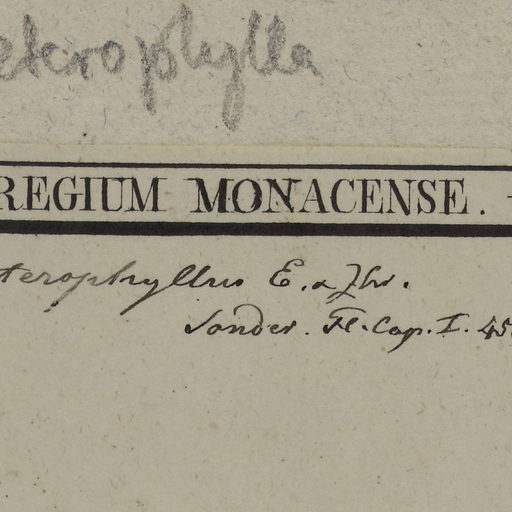 eterophylla
REGIUM MONACENSE.
terophyllus E. & Zhr.
Sonder. Fl. Cap. I. 45